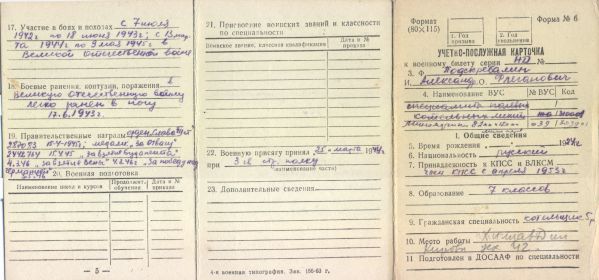 17. Участие в боях и походах с 7 июля
1942 г по 18 июня 1943 г; с 13 мар
та 1944 г по 9 мая 1945 г в
Великой отечественной войне
18. Боевые ранения, контузии, поражения в
Великую отечественную войну
легко ранен в ногу
17.6.1943 г.
19. Правительственные награды
287053 15-4-1945г; медали „За отвагу"
„За взятие Будапешта"
„За взятие Вены" „За победу над
20. Военная подготовка
Наименование школ и курсов
Продолжит. обучения
Дата и № приказа
— 5 —
21. Присвоение воинских званий и классности
по специальности
Воинское звание, классная квалификация
Дата и № приказа
22. Военную присягу принял 25 „ марта 1942 г.
при 3 зв стр. полку
(наименование части)
23. Дополнительные сведения
4-я военная типография. Зак. 156-63 г.
Формат
(80×115)
Форма № 6
1. Год призыва
2. Год увольнения
УЧЕТНО-ПОСЛУЖНАЯ КАРТОЧКА
к военному билету серии НД №
3. Ф. Подскребалин
И. Александр О. Степанович
4. Наименование ВУС
№ ВУС
Код
I. Общие сведения
5. Время рождения 1924 г.
6. Национальность русский
7. Принадлежность к КПСС и ВЛКСМ
член КПСС с апреля 1953 г
8. Образование 7 классов
9. Гражданская специальность котельщик 5 р
10. Место работы
11. Подготовлен в ДОСААФ по специальности